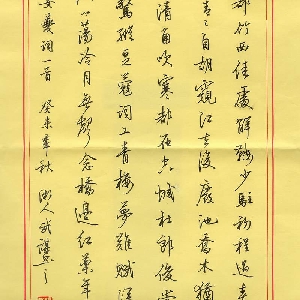 都竹西佳處解鞍少駐初程過春
青自胡窺江去後廢池喬木猶
清角吹寒都在空城杜郎俊賞
驚縱豆蔻詞工青樓夢難賦深
心蕩冷月無聲念橋邊紅藥年
姜夔詞一首 癸未年秋